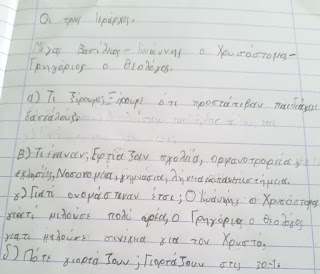 Οι τρεις Ιεράρχες.
Μέγας Βασίλειος-Ιωάννης ο Χρυσόστομος-
Γρηγόριος ο Θεολόγος.
α) Τι ξέρουμε; Ξέρουμε ότι προστάτεβαν παιδιά και
δασκάλους.
β) Τι έκαναν; Εφτίαζουν σχολία, ορφανοτροφία
Νοσοκομεία, γυμνασια, λήκεια
γ) Γιατί ονομάστηκαν έτσι; Ο Ιωάννης ο Χρυσόστομος
γιατι μιλούσε πολύ ωρεα, Ο Γρηγόριος ο Θεολόγος
γιατι μιλούσε συνεχια για τον Χριστό.
δ) Πότε γιορτάζουν; Γιορτάζουν στις 30-1.